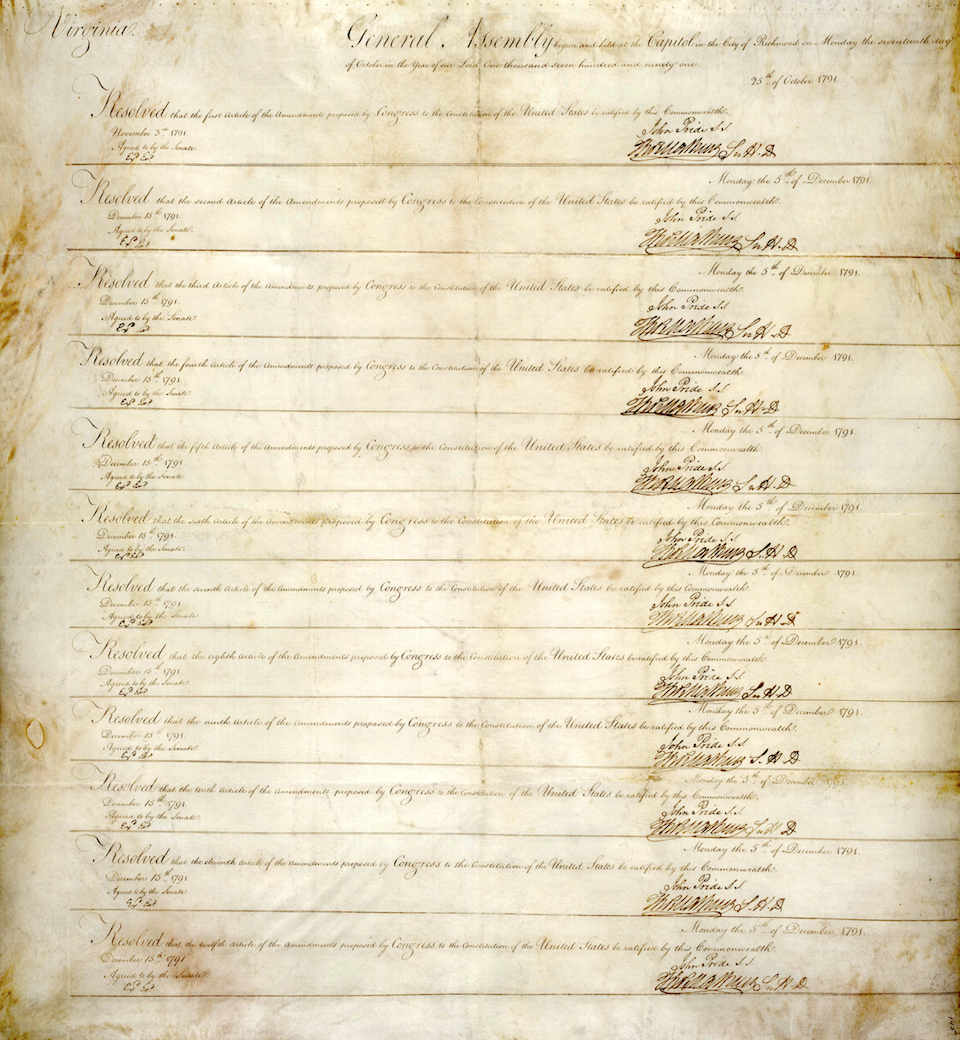 Virginia.
General Assembly begun and held at the Capitol in the City of Richmond on Monday the seventeenth day
of October in the Year of our Lord One thousand seven hundred and ninety one.
25th of October 1791.
Resolved that the first Article of the Amendments proposed by Congress to the Constitution of the United States be ratified by this Commonwealth.
November 3rd 1791.
Agreed to by the Senate.
John Pride S.S.
Monday the 5th of December 1791.
Resolved that the second Article of the Amendments proposed by Congress to the Constitution of the United States be ratified by this Commonwealth.
December 15th 1791.
Agreed to by the Senate.
John Pride S.S.
Monday the 5th of December 1791.
Resolved that the third Article of the Amendments proposed by Congress to the Constitution of the United States be ratified by this Commonwealth.
December 15th 1791.
Agreed to by the Senate.
John Pride S.S.
Monday the 5th of December 1791.
Resolved that the fourth Article of the Amendments proposed by Congress to the Constitution of the United States be ratified by this Commonwealth.
December 15th 1791
Agreed to by the Senate.
John Pride S.S.
Monday the 5th of December 1791.
Resolved that the fifth Article of the Amendments proposed by Congress to the Constitution of the United States be ratified by this Commonwealth.
December 15th 1791.
Agreed to by the Senate.
John Pride S.S.
Monday the 5th of December 1791.
Resolved that the sixth Article of the Amendments proposed by Congress to the Constitution of the United States be ratified by this Commonwealth.
December 15th 1791.
Agreed to by the Senate.
John Pride S.S.
Monday the 5th of December 1791.
Resolved that the seventh Article of the Amendments proposed by Congress to the Constitution of the United States be ratified by this Commonwealth.
December 15th 1791
Agreed to by the Senate.
John Pride S.S.
Monday the 5th of December 1791.
Resolved that the eighth Article of the Amendments proposed by Congress to the Constitution of the United States be ratified by this Commonwealth.
December 15th 1791
Agreed to by the Senate.
John Pride S.S.
Monday the 5th of December 1791.
Resolved that the ninth Article of the Amendments proposed by Congress to the Constitution of the United States be ratified by this Commonwealth.
December 15th 1791.
Agreed to by the Senate.
John Pride S.S.
Monday the 5th of December 1791.
Resolved that the tenth Article of the Amendments proposed by Congress to the Constitution of the United States be ratified by this Commonwealth.
December 15th 1791.
Agreed to by the Senate.
John Pride S.S.
Monday the 5th of December 1791.
Resolved that the eleventh Article of the Amendments proposed by Congress to the Constitution of the United States be ratified by this Commonwealth.
December 15th 1791
Agreed to by the Senate
John Pride S.S.
Monday the 5th of December 1791.
Resolved that the twelfth Article of the Amendments proposed by Congress to the Constitution of the United States be ratified by this Commonwealth.
December 15th 1791
Agreed to by the Senate
John Pride S.S.